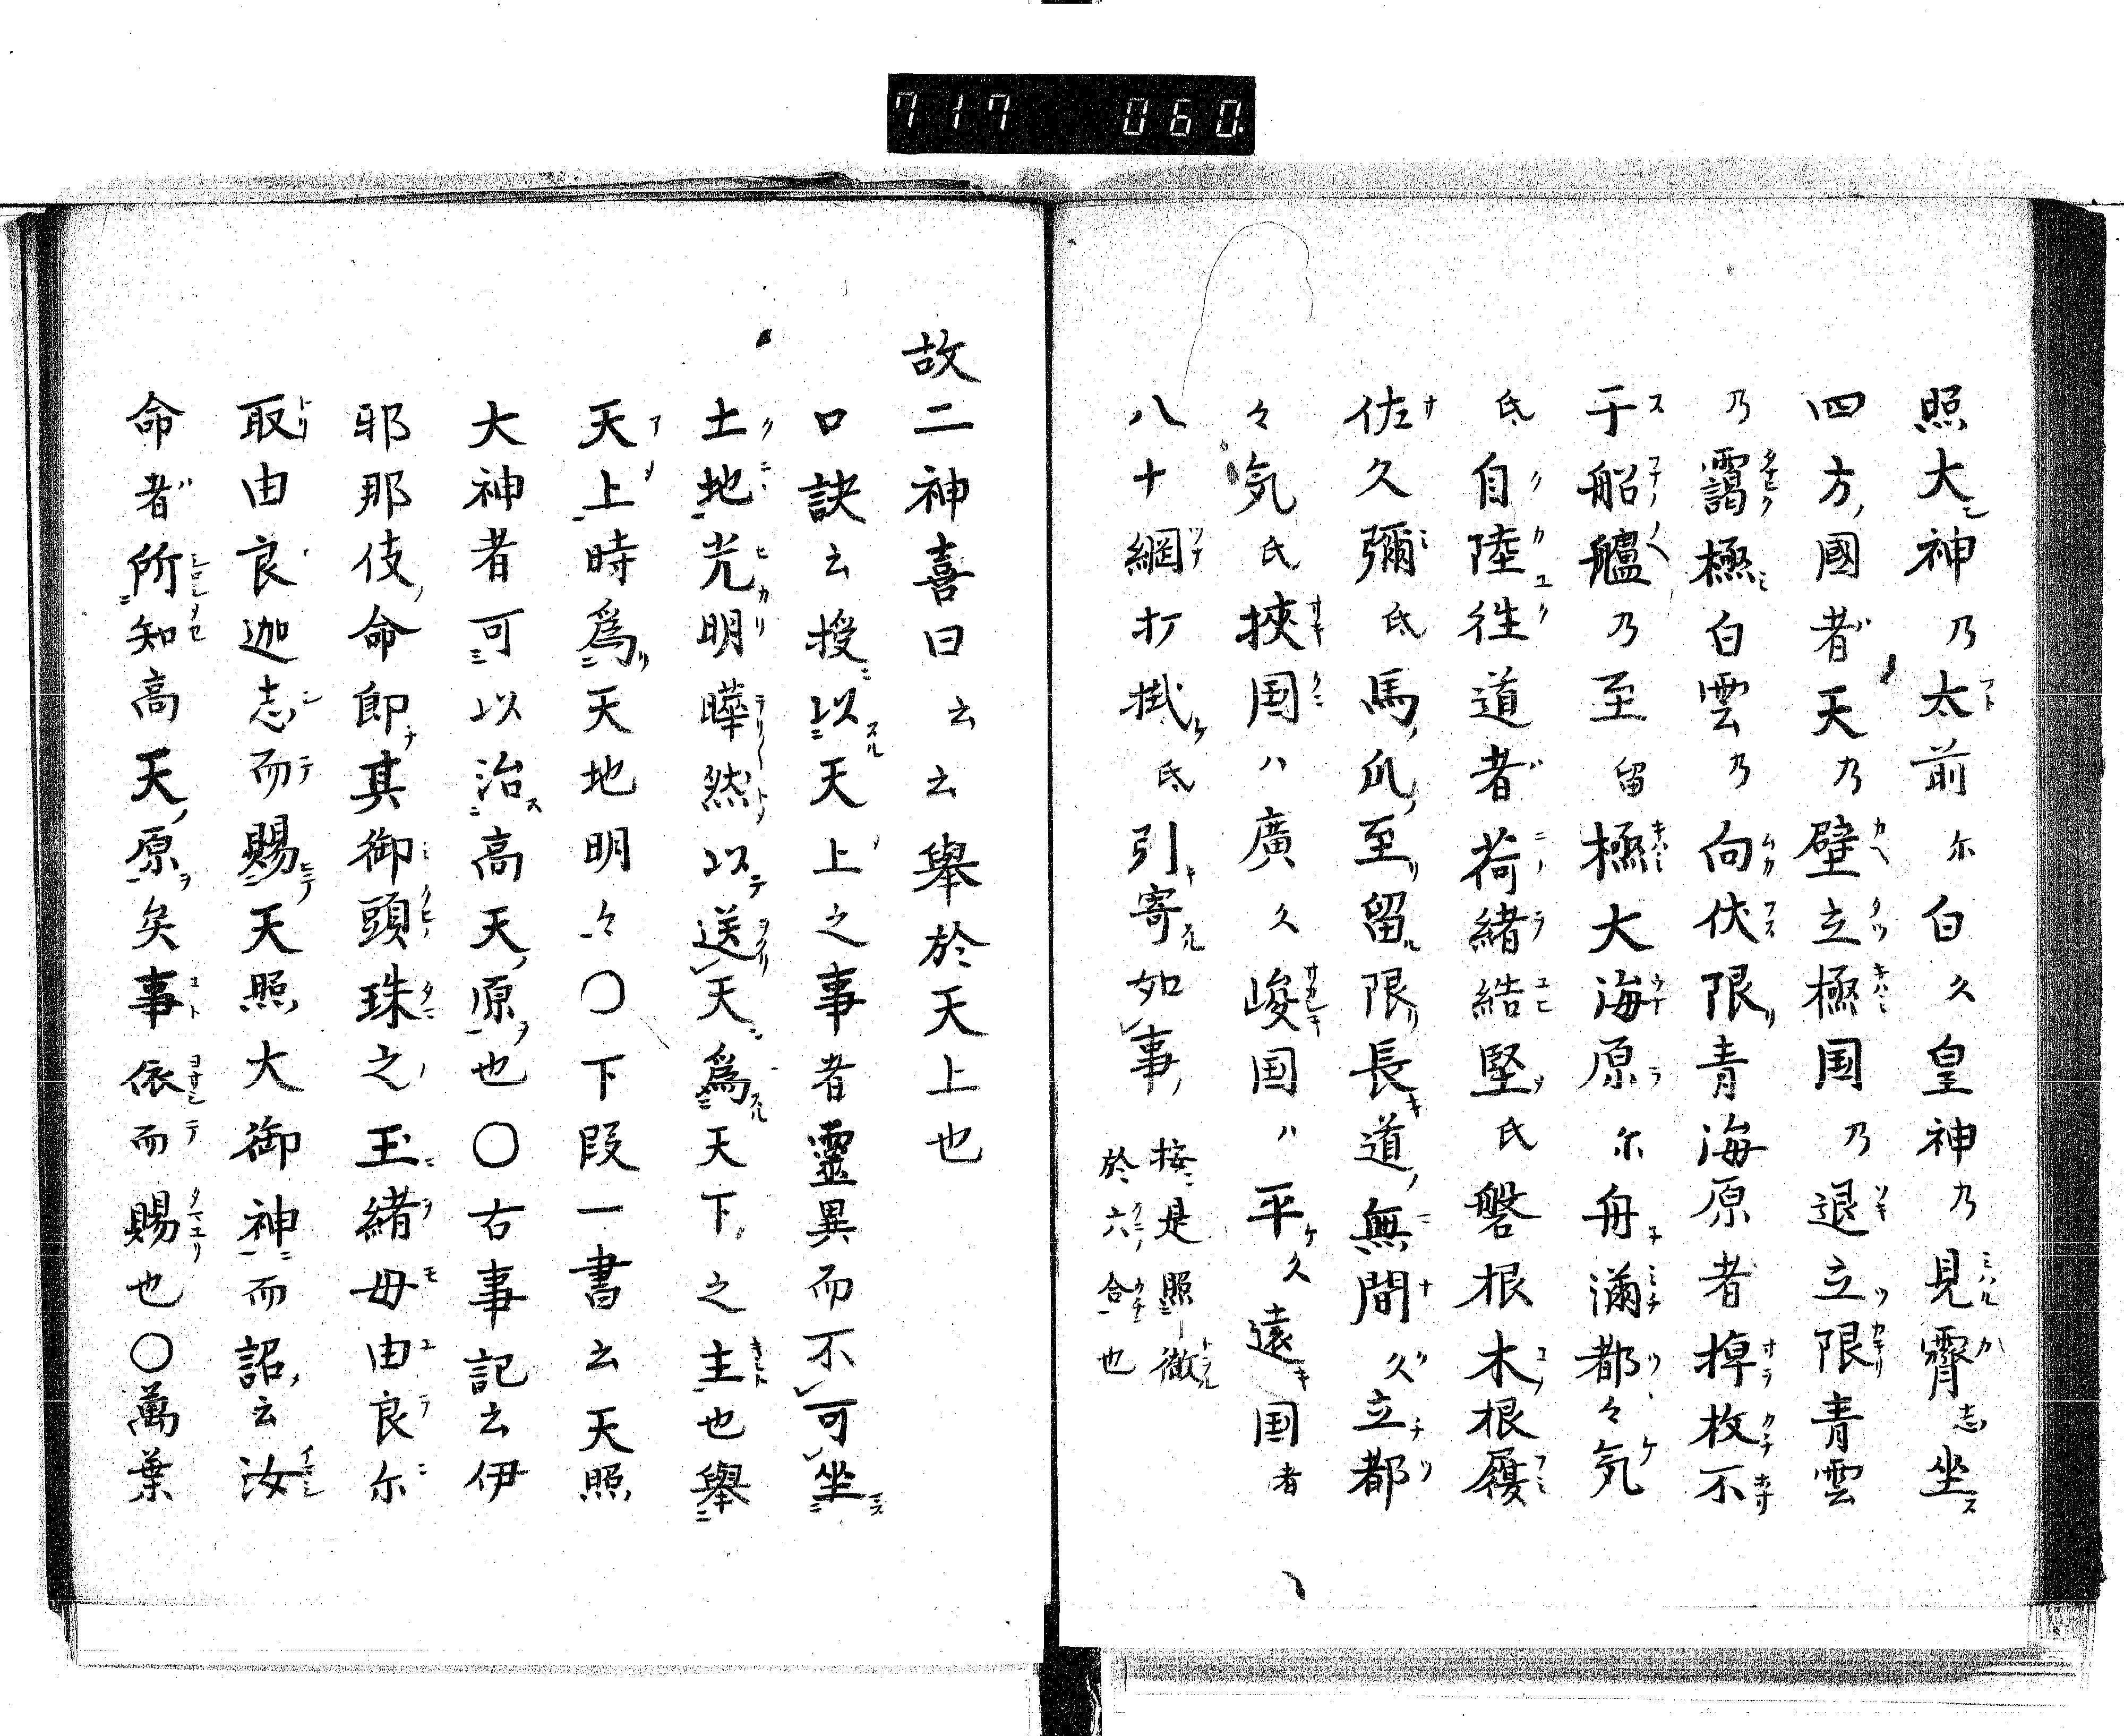 717 060.
照大神乃太前尓白久皇神乃見霽志坐
四方國者天乃壁立極国乃退立限青雲
乃靄極白雲乃向伏限青海原者棹枚不
干船艫乃至留極大海原尓舟滿都々気
氐自陸徃道者荷緒結堅氐磐根木根履
佐久彌氐馬爪至留限長道無間久立都
々気氐挾国ハ廣久峻国ハ平久遠国者
八十綱打掛氐引寄如事按是照徹
於六合也
故二神喜曰云云舉於天上也
口訣云授以天上之事者靈異而不可坐
土地光明曄然以送天爲天下之主也舉
天上時爲天地明々〇下段一書云天照
大神者可以治高天原也〇古事記云伊
耶那伎命即其御頭珠之玉緒毋由良尓
取由良迦志而賜天照大御神而詔云汝
命者所知高天原矣事依而賜也〇萬葉